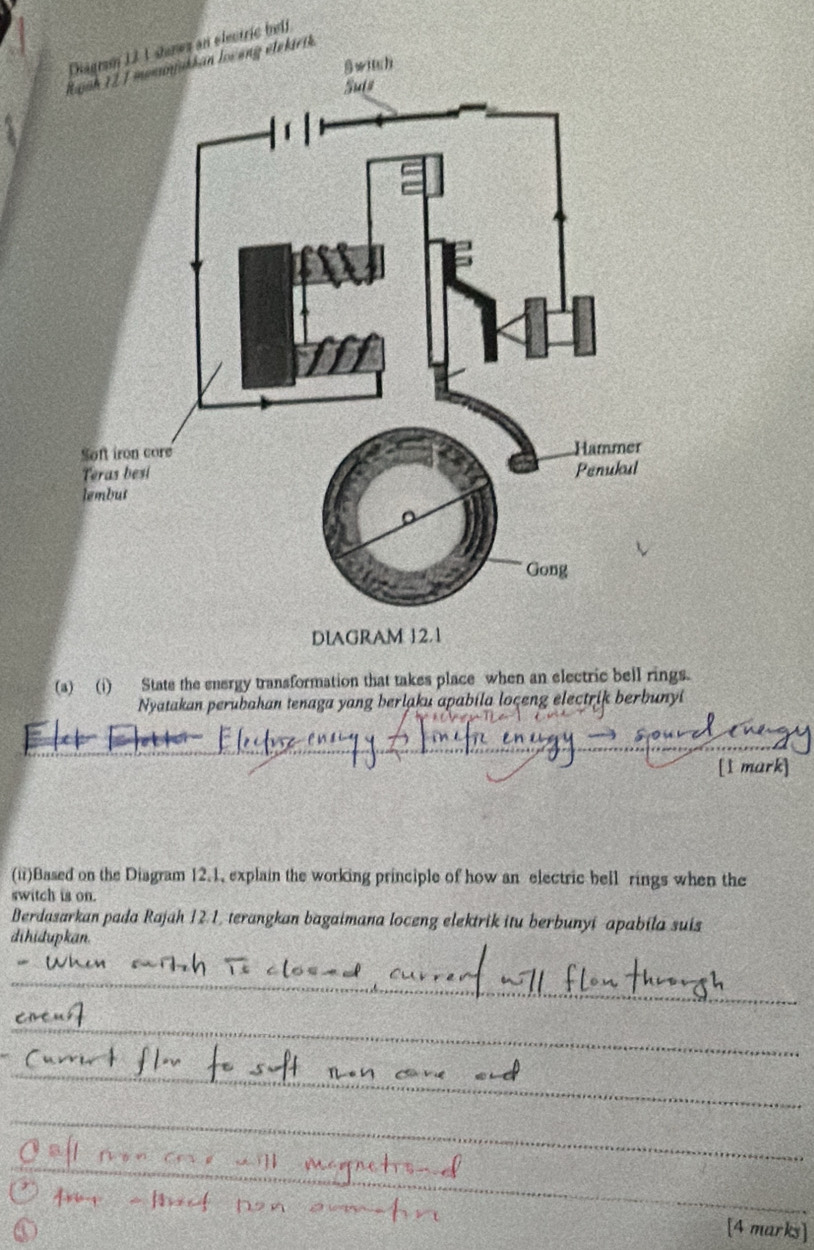 Diagram 12.1 shows an electric bell
Rajah 12.1 menunjukkan loceng elektrik
Switch
Suis
Soft iron core
Teras besi
lembut
Hammer
Penukul
Gong
DIAGRAM 12.1
(a) (i) State the energy transformation that takes place when an electric bell rings.
Nyatakan perubahan tenaga yang berlaku apabila loceng electrik berbunyi
energy
energy → sound energy
[1 mark]
(ii)Based on the Diagram 12.1, explain the working principle of how an electric bell rings when the
switch is on.
Berdasarkan pada Rajah 12.1, terangkan bagaimana loceng elektrik itu berbunyi apabila suis
dihidupkan.
- When switch is closed, current will flow through
circuit
- Current flow to soft iron core and
iron core will
iron
[4 marks]